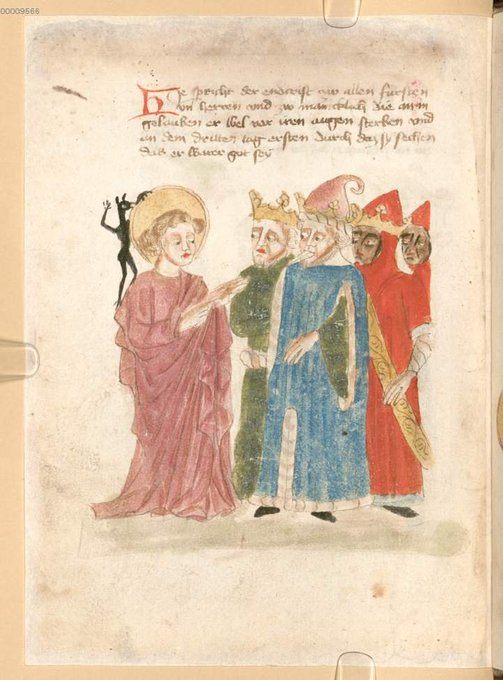 00009566
Hie spricht der endcrist zw allen fürsten
vn̄ herren vnd zw mancklich die an in
gelauben er wel vor iren augen sterben vnd
an dem dritten tag ersten durch daz sy sechen
das er warer got sey